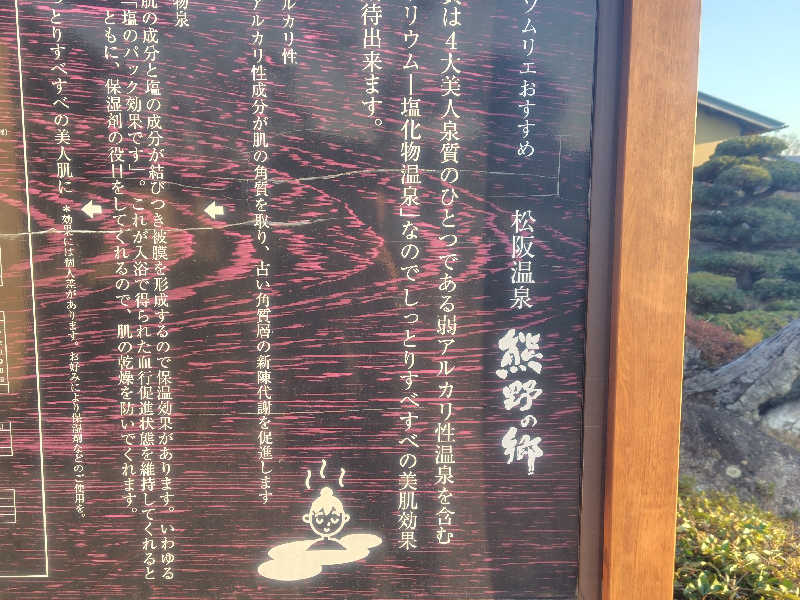 ソムリエおすすめ
松阪温泉 熊野の郷
は4大美人泉質のひとつである弱アルカリ性温泉を含む
リウム―塩化物温泉」なのでしっとりすべすべの美肌効果
待出来ます。
ルカリ性
アルカリ性成分が肌の角質を取り、古い角質層の新陳代謝を促進します
物泉
肌の成分と塩の成分が結びつき被膜を形成するので保温効果があります。いわゆる
「塩のパック効果です」。これが入浴で得られた血行促進状態を維持してくれると
ともに、保湿剤の役目をしてくれるので、肌の乾燥を防いでくれます。
っとりすべすべの美人肌に
*効果には個人差があります。お好みにより保湿剤などのご使用を。